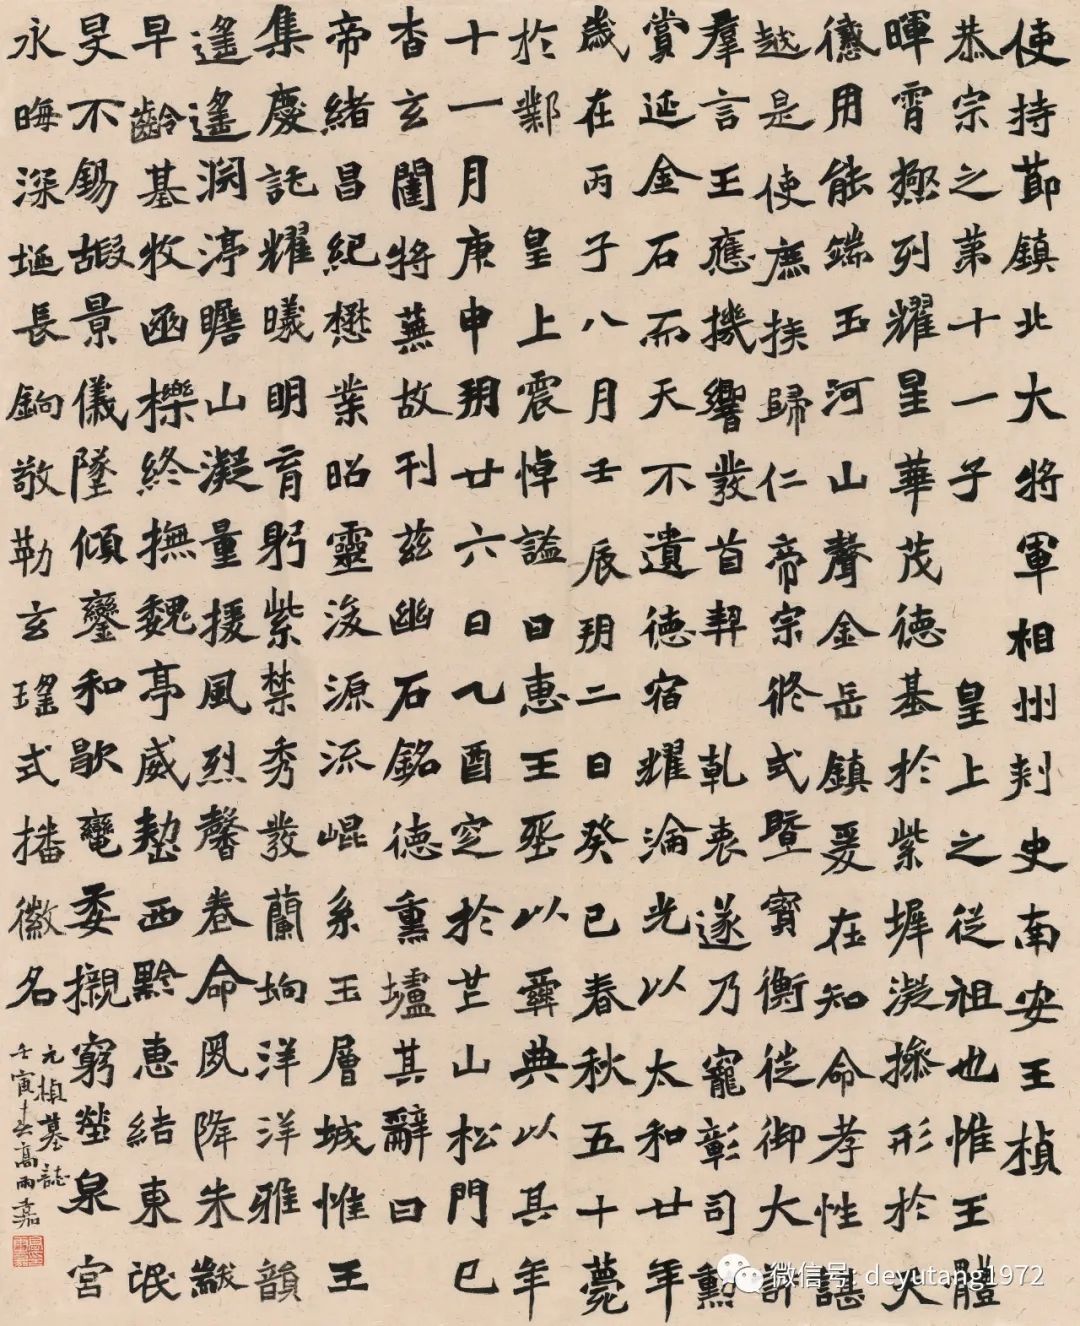 使持節鎮北大將軍相州刾史南安王楨
恭宗之第十一子 皇上之従祖也惟王體
暉霄極列耀星華茂德基於紫墀凝操形於天
德用能端玉河山聲金岳鎮爰在知命孝性諶
越是使庶族歸仁帝宗終式暨寶衡徙御大訢
羣言王應機響發首契 乾衷遂乃寵彰司勲
賞延金石而天不遺德宿耀淪光以太和廿年
歲在丙子八月壬辰朔二日癸巳春秋五十薨
於鄴 皇上震悼謚曰惠王塟以彝典以其年
十一月庚申朔廿六日乙酉窆於芒山松門已
杳玄闥將蕪故刊兹幽石銘德熏壚其辭曰
帝緒昌紀懋業昭靈浚源流崐系玉層城惟王
集慶託耀曦明育躬紫禁秀發蘭坰洋洋雅韻
遙遙淵渟瞻山凝量援風烈馨卷命夙降朱黻
早齡基牧函櫟終撫魏亭威懃西黔惠結東氓
旻不錫嘏景儀墜傾鑾和歇轡委櫬窮塋泉宮
永晦深埏長鋿敬勒玄瑤式播徽名
元楨墓誌
壬寅十春高雨嘉
微信号: deyutang1972